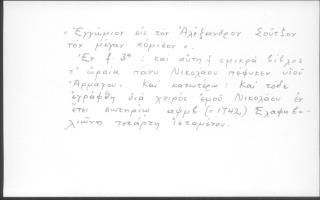 « Ἐγκώμιον εἰς τὸν Ἀλέξανδρον Σοῦτζον
τὸν μέγαν κόμισον ».
Ἐν f. 3ᵃ : καὶ αὕτη ἡ σμικρὰ βίβλος
τ' ὡραία πάνυ Νικολάου πέφυκεν υἱοῦ
Ἁρμάγου. Καὶ κατωτέρω : Καὶ τόδε
ἐγράφθη διὰ χειρὸς ἐμοῦ Νικολάου ἐν
ἔτει σωτηρίῳ αψμβ (=1742) Ἐλαφηβο-
λιῶνος τετάρτῃ ἱσταμένου.